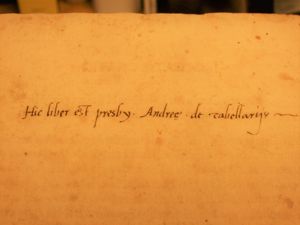 Hic liber est presby. Andreę de cabellarijs